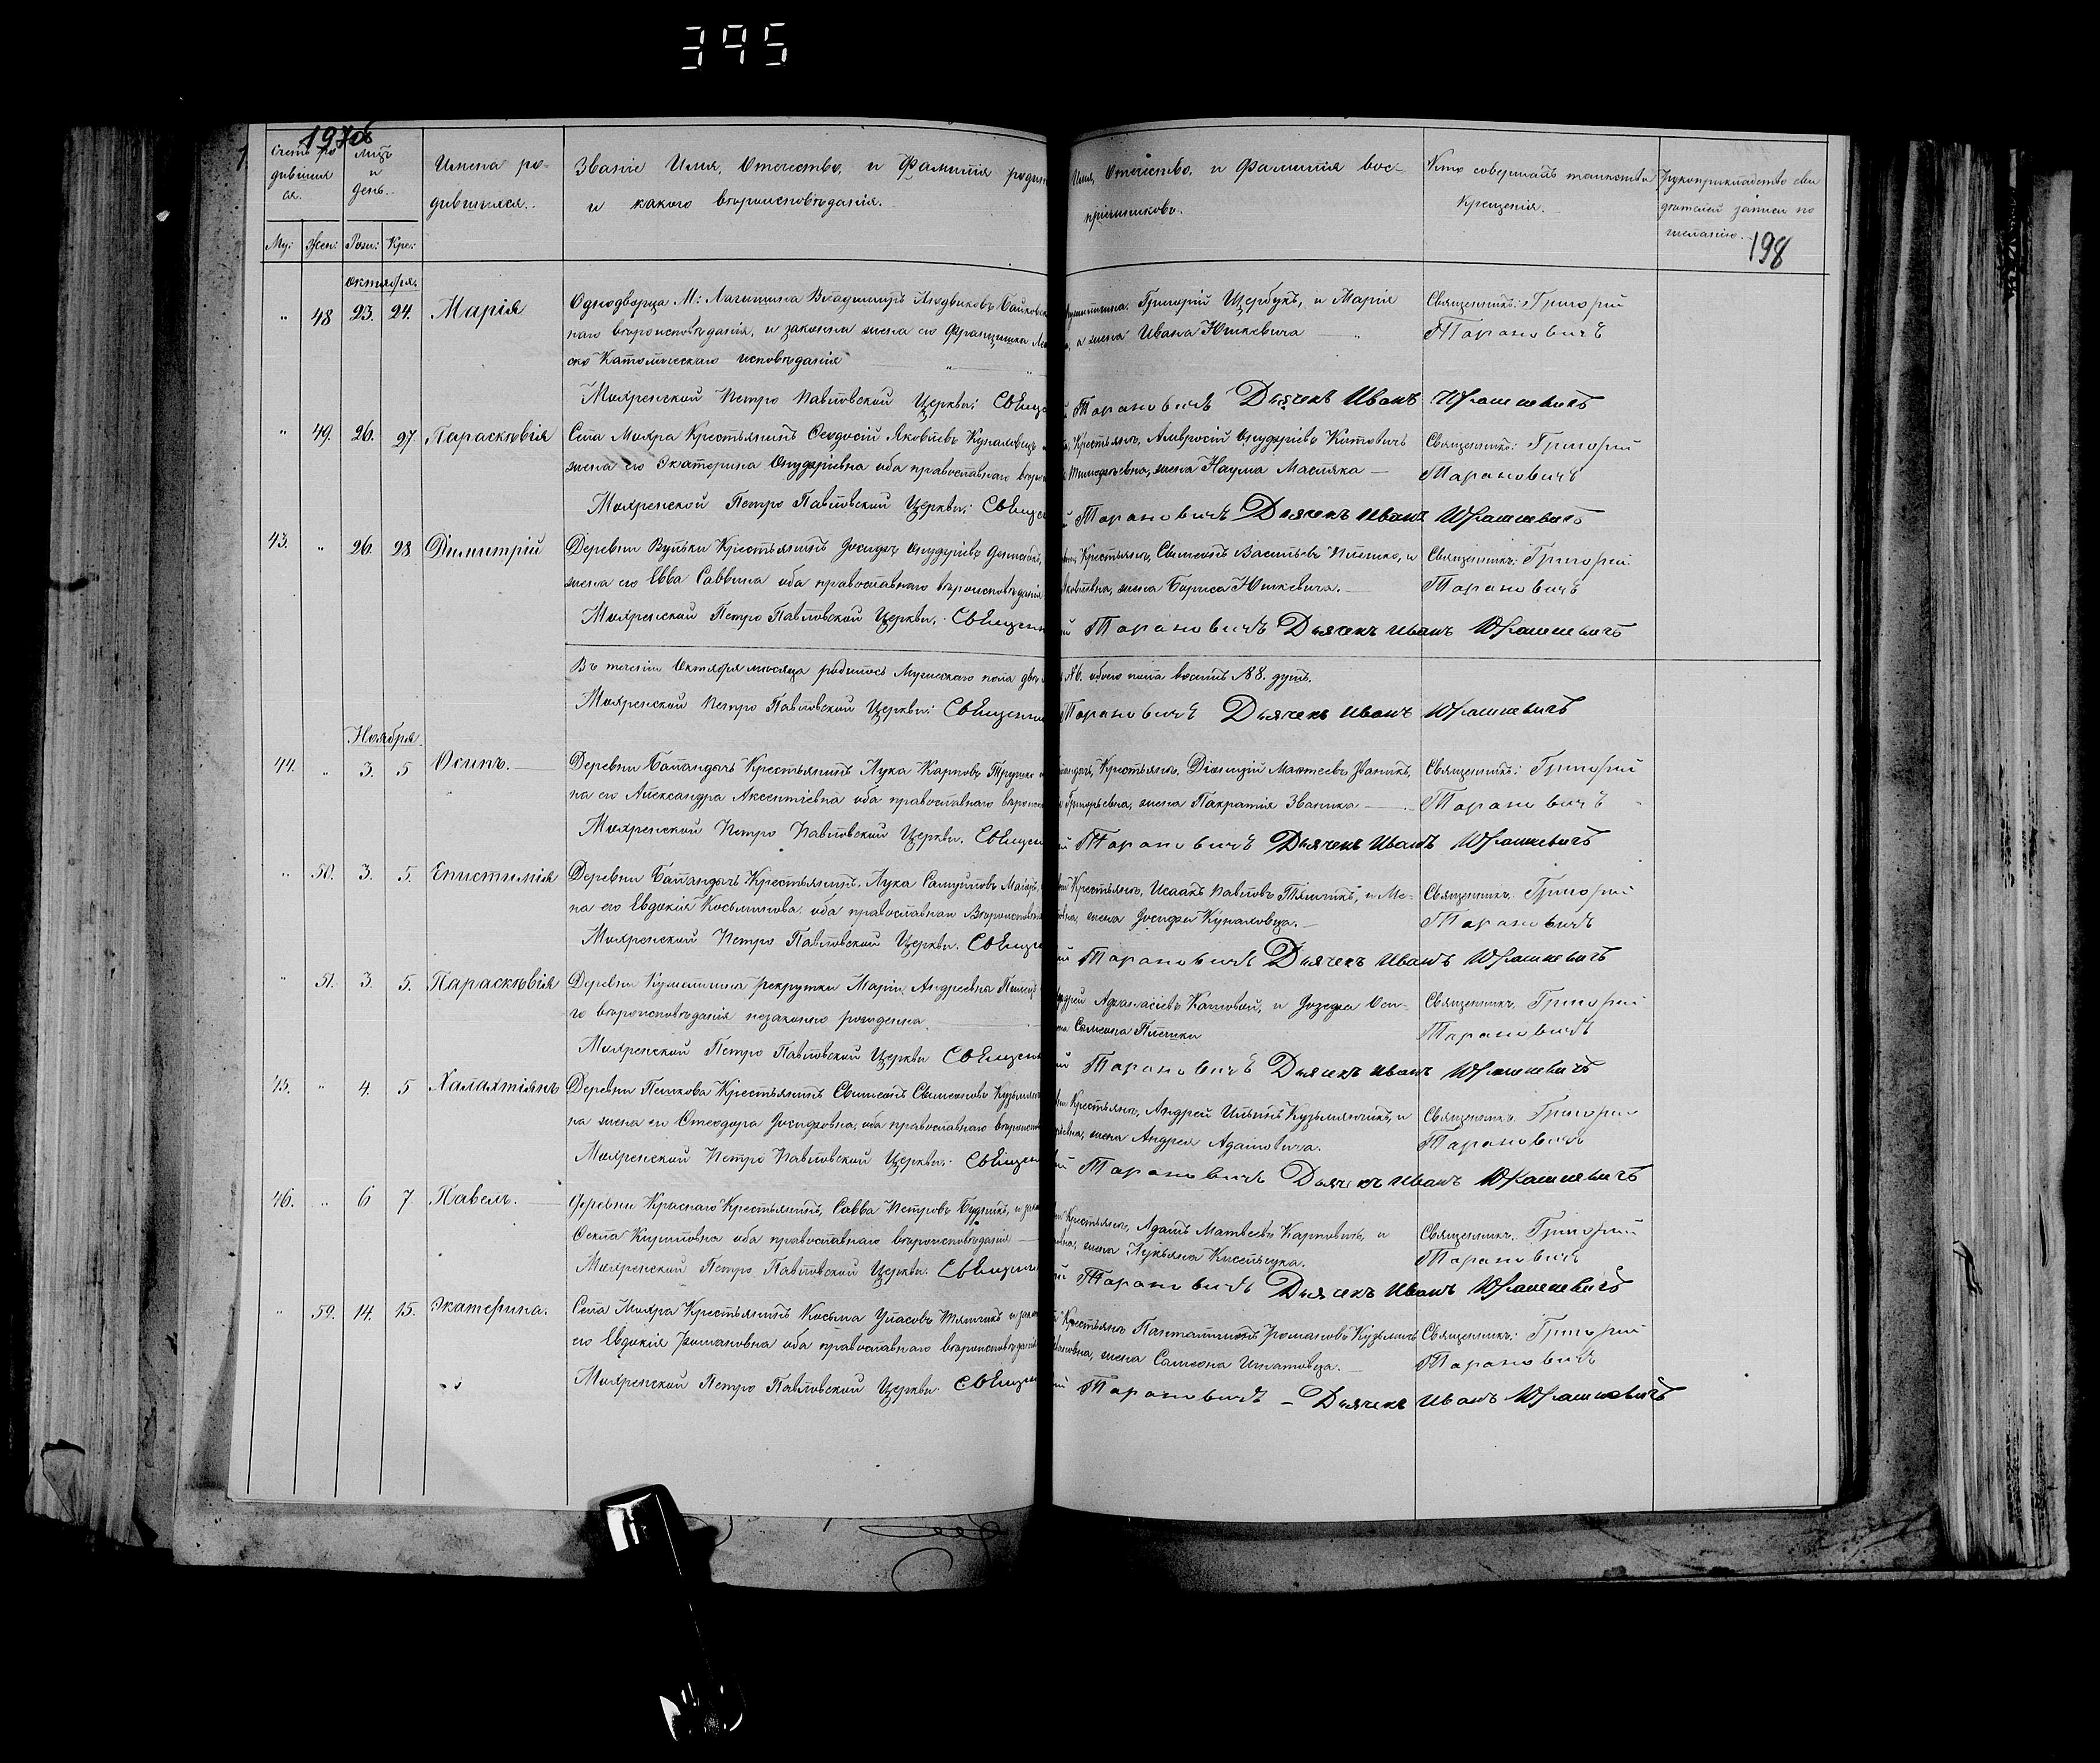 395
197об
198
Счетъ ро
дивших
ся.
Мцъ
и
день.
Имена ро-
дившихся.
Званіе Имя, Отчество, и Фамилія родит
и какого вѣроисповѣданія.
Имя, Отчество, и Фамилія вос-
пріемниковъ.
Кто совершалъ таинство
Крещенія.
Рукоприкладство сви
дѣтелей записи по
желанію.
Му: Жен: Рож: Кре:
Октября.
" 48 23. 24. Марія
Однодворца М: Логишина Владимиръ Людвиковъ
наго вѣроисповѣданія, и законная жена его Францишка
ско Католическаго исповѣданія
Григорій Щербукъ, и Марія
а жена Ивана Юшкевича
Священникъ: Григорій
Тарановичъ
Мокренской Петро Павловской Церкви: Свяще
Тарановичъ Дьячекъ Иванъ Юрашкевичъ
" 49. 26. 27. Параскѣвія
Села Мокра Крестьянинъ Ѳеодосій Яковлевъ Куналовецъ
жена его Екатерина Онуфріевна оба православнаго вѣро
Крестьян. Амвросій Онуфріевъ Китовичъ
Тимоѳеевна, жена Наума Масляка
Священникъ: Григорій
Тарановичъ
Мокренской Петро Павловской Церкви: Свяще
Тарановичъ Дьячекъ Иванъ Юрашкевичъ
43. " 26. 28 Димитрій
Деревни Вульки Крестьянинъ Іосифъ Онуфріевъ
жена его Евва Саввина оба православнаго вѣроисповѣданія
Крестьян. Сѵмеонъ Васильевъ и
Яковлевна, жена Бориса Юшкевича.
Священникъ: Григорій
Тарановичъ
Мокренской Петро Павловской Церкви: Священ
Тарановичъ Дьячекъ Иванъ Юрашкевичъ
Въ теченіи Октября мѣсяца родилось Мужескаго пола два
№6. обоего пола восемь №8. душъ.
Мокренской Петро Павловской Церкви: Священ
Тарановичъ Дьячекъ Иванъ Юрашкевичъ
Ноября.
44. " 3. 5 Осипъ.
Деревни Баландичъ Крестьянинъ Лука Карповъ Трушко
на его Александра Аксентіевна оба православнаго вѣроисп
Крестьян. Діонизій Матѳеевъ Званикъ,
Григорьевна, жена Пакратія Званика
Священникъ: Григорій
Тарановичъ
Мокренской Петро Павловской Церкви. Свяще
Тарановичъ Дьячекъ Иванъ Юрашкевичъ
" 50. 3. 5. Епистимія
Деревни Баландичъ Крестьянинъ, Лука Самуиловъ
на его Евдокія Косьминова оба православнаго Вѣроисповѣ
Крестьян. Исаакъ Павловъ Тямчикъ, и Ме-
жена Іосифа Куналовца.
Священникъ. Григорій
Тарановичъ
Мокренской Петро Павловской Церкви. Свяще
Тарановичъ Дьячекъ Иванъ Юрашкевичъ
" 51. 3. 5. Параскѣвія
Деревни рекрутки Маріи Андреевна
го вѣроисповѣданія незаконно рожденна.
Аѳанасіевъ и Іозефа Оси-
Самсона
Священникъ. Григорій
Тарановичъ
Мокренской Петро Павловской Церкви Священ
Тарановичъ Дьячекъ Иванъ Юрашкевичъ
45. " 4. 5 Халахтіонъ
Деревни Пешкова Крестьянинъ Сѵмеонъ Сѵмеоновъ
на жена его Ѳеодора Іосифовна, оба православнаго вѣроиспо
Крестьян, Андрей Ильинъ Кузьмичикъ, и
жена Андрея Адамовича.
Священникъ. Григорій
Тарановичъ
Мокренской Петро Павловской Церкви: Священ
Тарановичъ Дьячекъ Иванъ Юрашкевичъ
46. " 6 7 Павелъ.
Деревни Краснаго Крестьянинъ, Савва Петровъ и зак
Ѳекла Кирилловна оба православнаго вѣроисповѣданія
Крестьян, Адамъ Матвеевъ Карповичъ, и
жена Лукьяна Кисельчука.
Священникъ. Григорій
Тарановичъ
Мокренской Петро Павловской Церкви. Священ
Тарановичъ Дьячекъ Иванъ Юрашкевичъ
" 52. 14. 15. Екатерина.
Села Мокра Крестьянинъ Косьма Уласовъ Тямчикъ и зак
его Евдокія Романовна оба православнаго вѣроисповѣданія
Крестьян. Романовъ
жена Самсона Игнатовца.
Священникъ: Григорій
Тарановичъ
Мокренской Петро Павловской Церкви. Священ
Тарановичъ – Дьячекъ Иванъ Юрашкевичъ